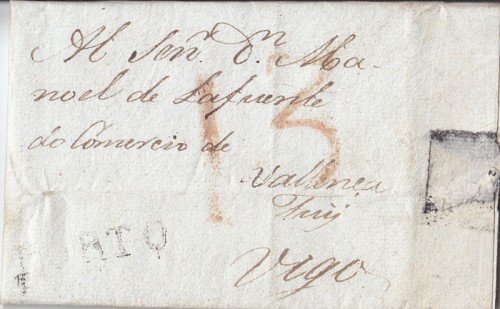 Al Señr. Dn. Ma-
noel de Lafuente
do Comercio de
Vallença
Tuij
Vigo
13
PORTO